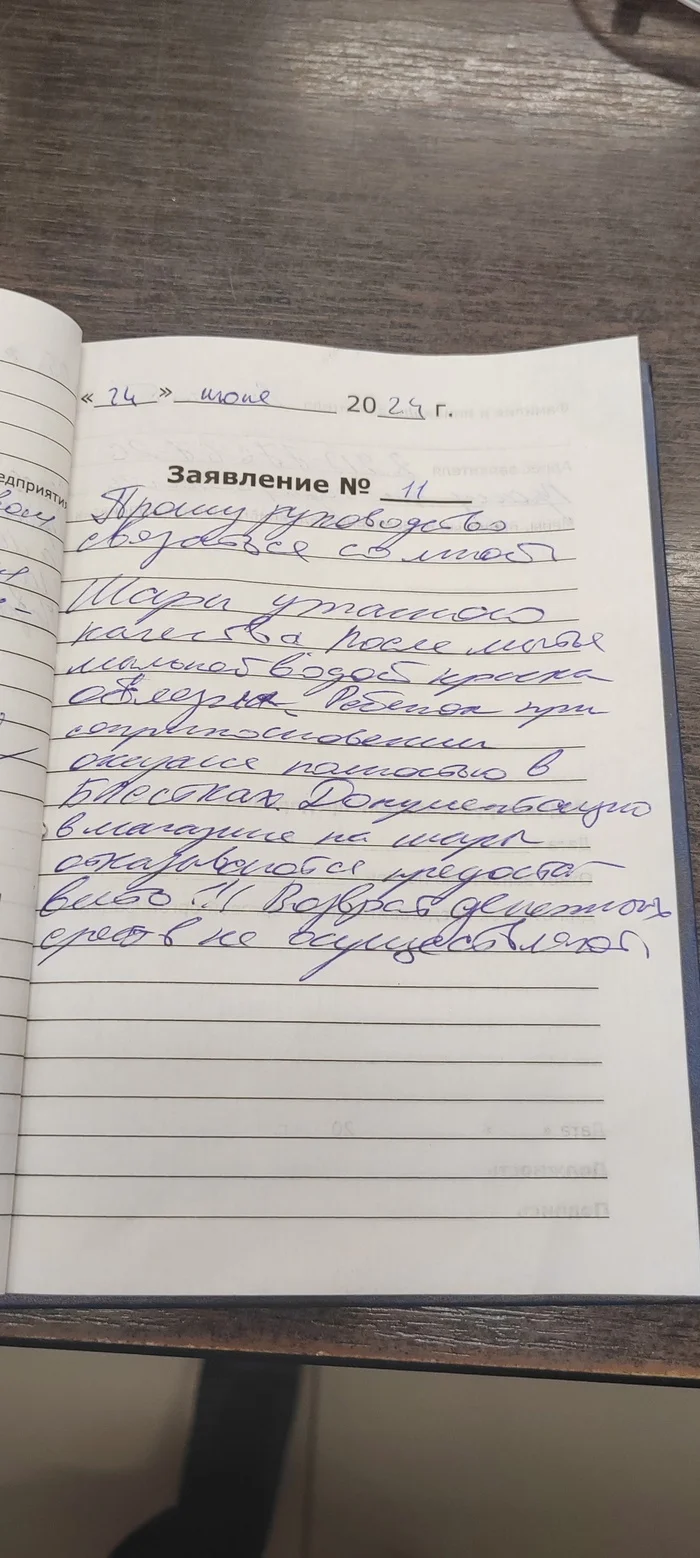 едприяти
« 24 » июне 20 24 г.
Заявление № 11
Прошу руководство
связаться со мной
Шары ужасного
качества После мытья
мыльной водой краска
облезла. Ребенок при
соприкосновении
оказался полностью в
Блестках. Документацию
в магазине на шары
отказываются предостав
вить !!! Возврат денежных
средств не осуществляют,
Дата « » 20 г.
Должность
Подпись